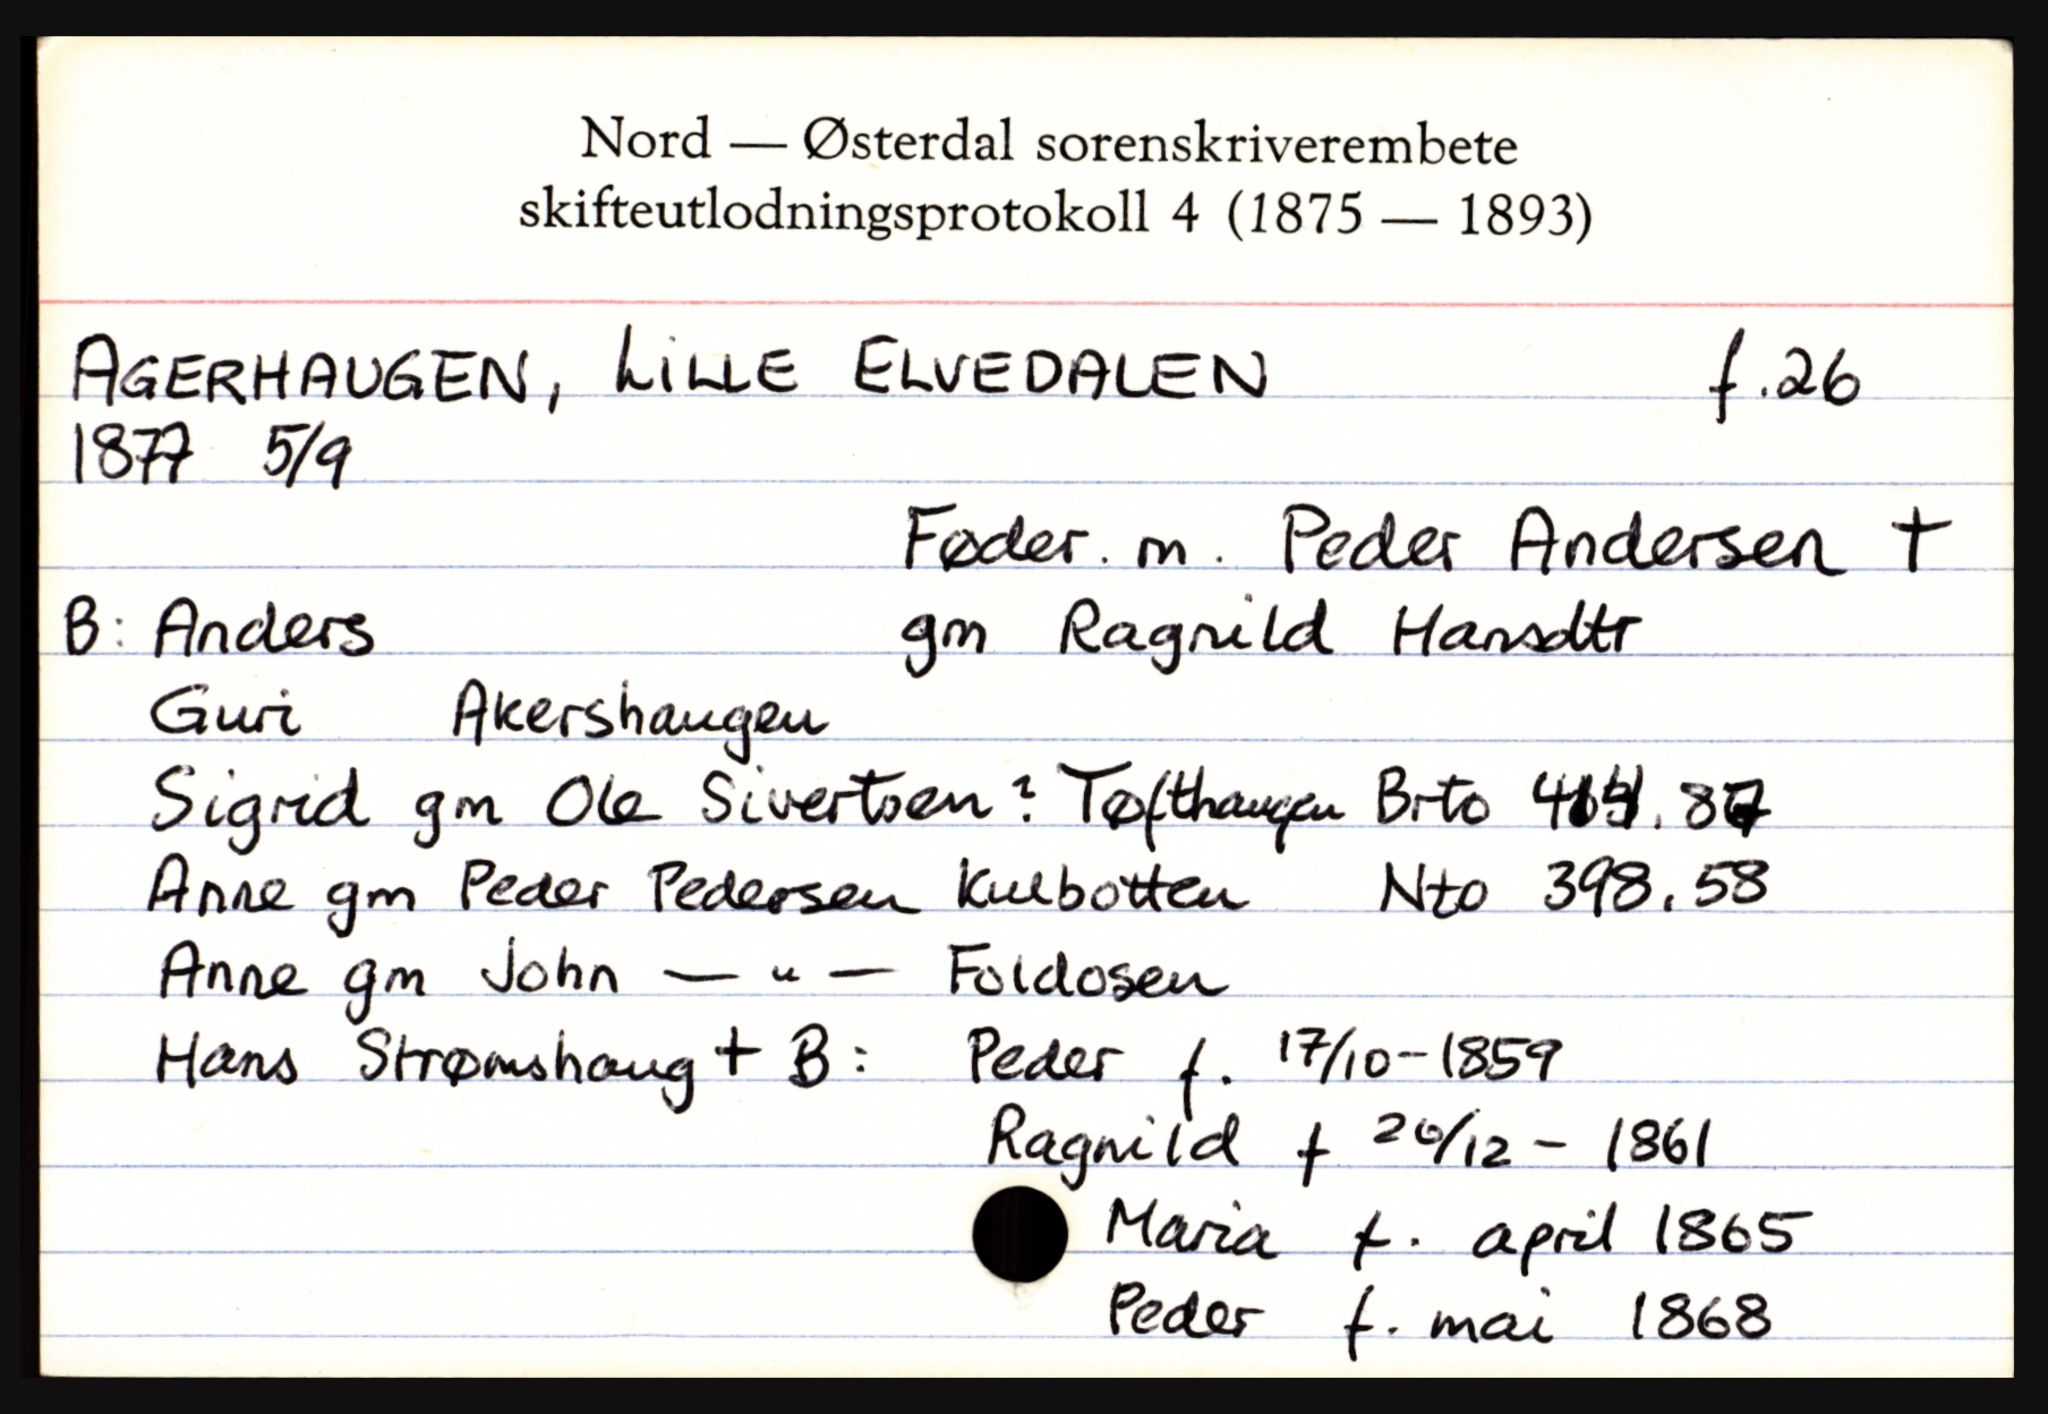 Nord — Østerdal sorenskriverembete
skifteutlodningsprotokoll 4 (1875 — 1893)
AGERHAUGEN, LILLE ELVEDALEN f. 26
1877 5/9
Føder. m. Peder Andersen †
B: Anders gm Ragnild Hansdtr
Guri Akershaugen
Sigrid gm Ole Sivertsen? Tøfthaugen Brto
Anne gm Peder Pedersen Kulbotten Nto 398.58
Anne gm John — " — Foldosen
Hans Strømshaug † B: Peder f. 17/10-1859
Ragnild f 20/12 - 1861
Maria f. april 1865
Peder f. mai 1868